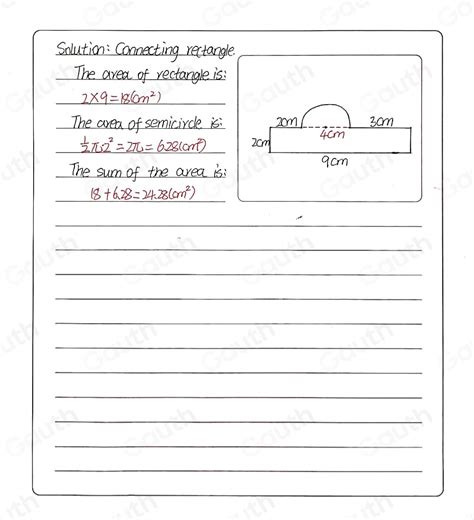 Solution: Connecting rectangle.
The area of rectangle is:
2×9=18(cm²)
The area of semicircle is:
½π·2²=2π=6.28(cm²)
The sum of the area is:
18+6.28=24.28(cm²)
2cm
3cm
4cm
2cm
9cm
Gauth